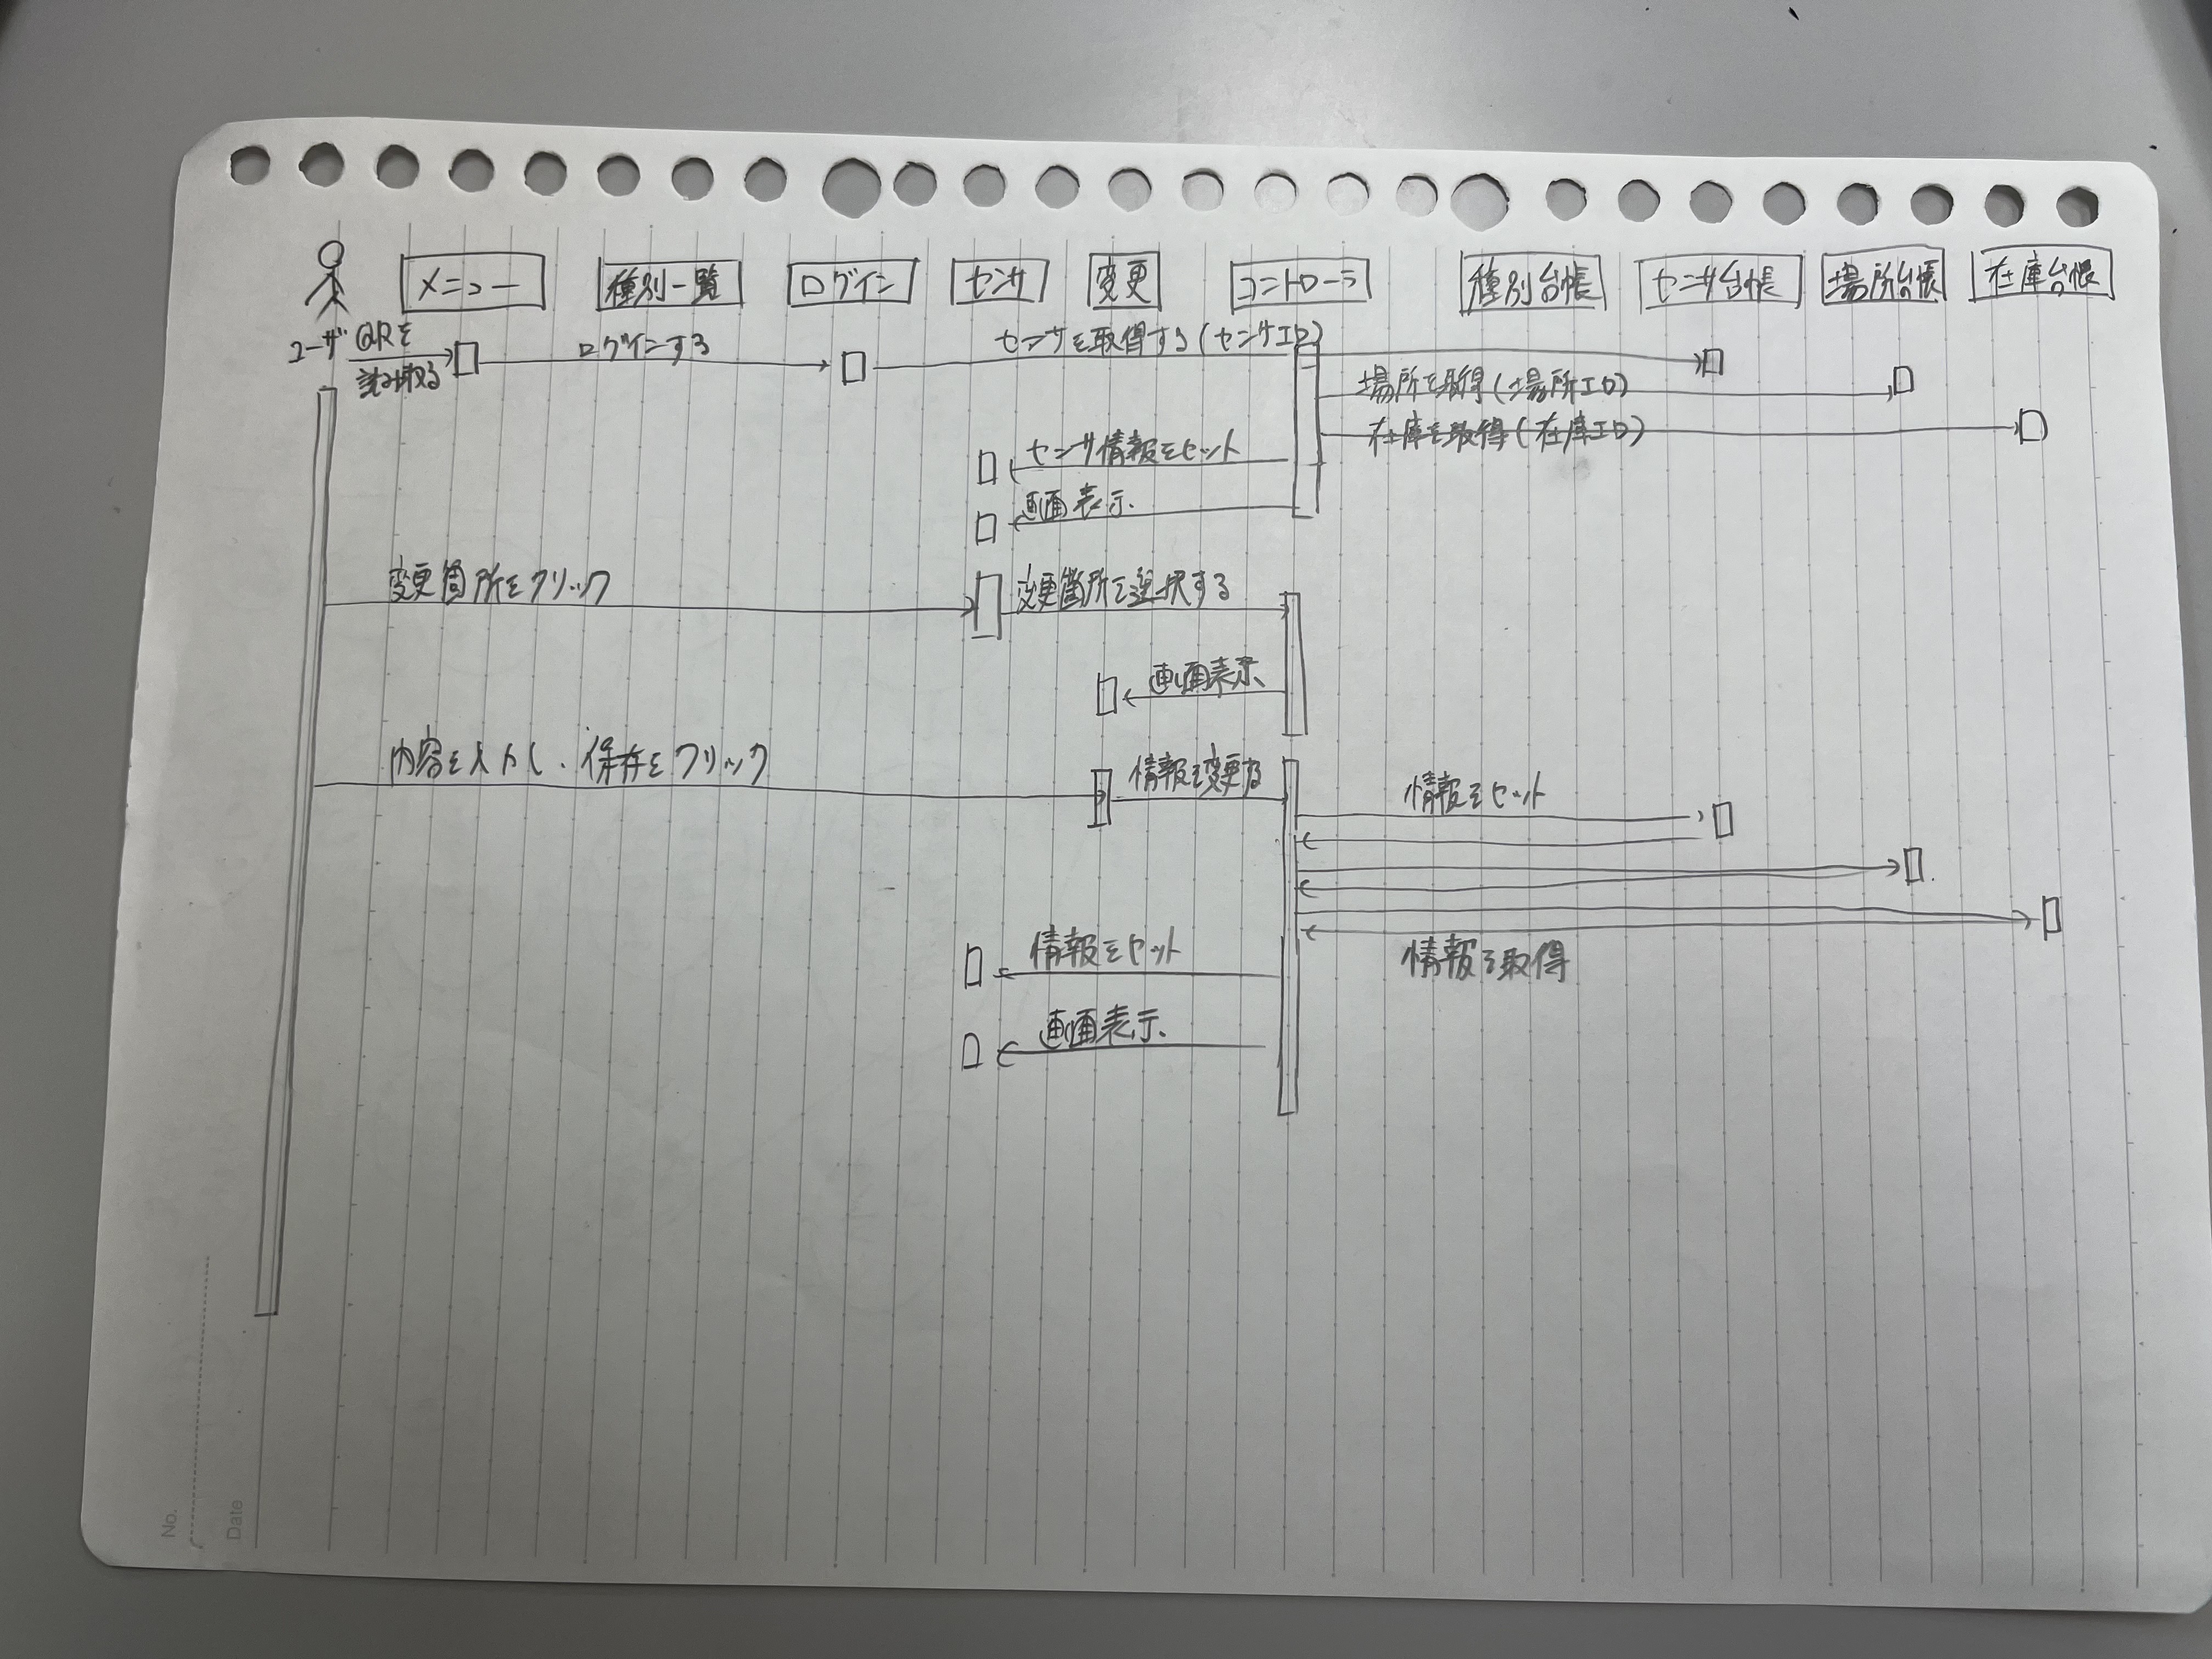 メニュー
種別一覧
ログイン
センサ
変更
コントローラ
種別台帳
センサ台帳
場所台帳
在庫台帳
ユーザ
QRを
読み取る
ログインする
センサを取得する(センサID)
場所を取得(場所ID)
在庫を取得(在庫ID)
センサ情報をセット
画面表示
変更箇所をクリック
変更箇所を選択する
画面表示
内容を入力し、保存をクリック
情報を変更する
情報をセット
情報をセット
情報を取得
画面表示
No.
Date